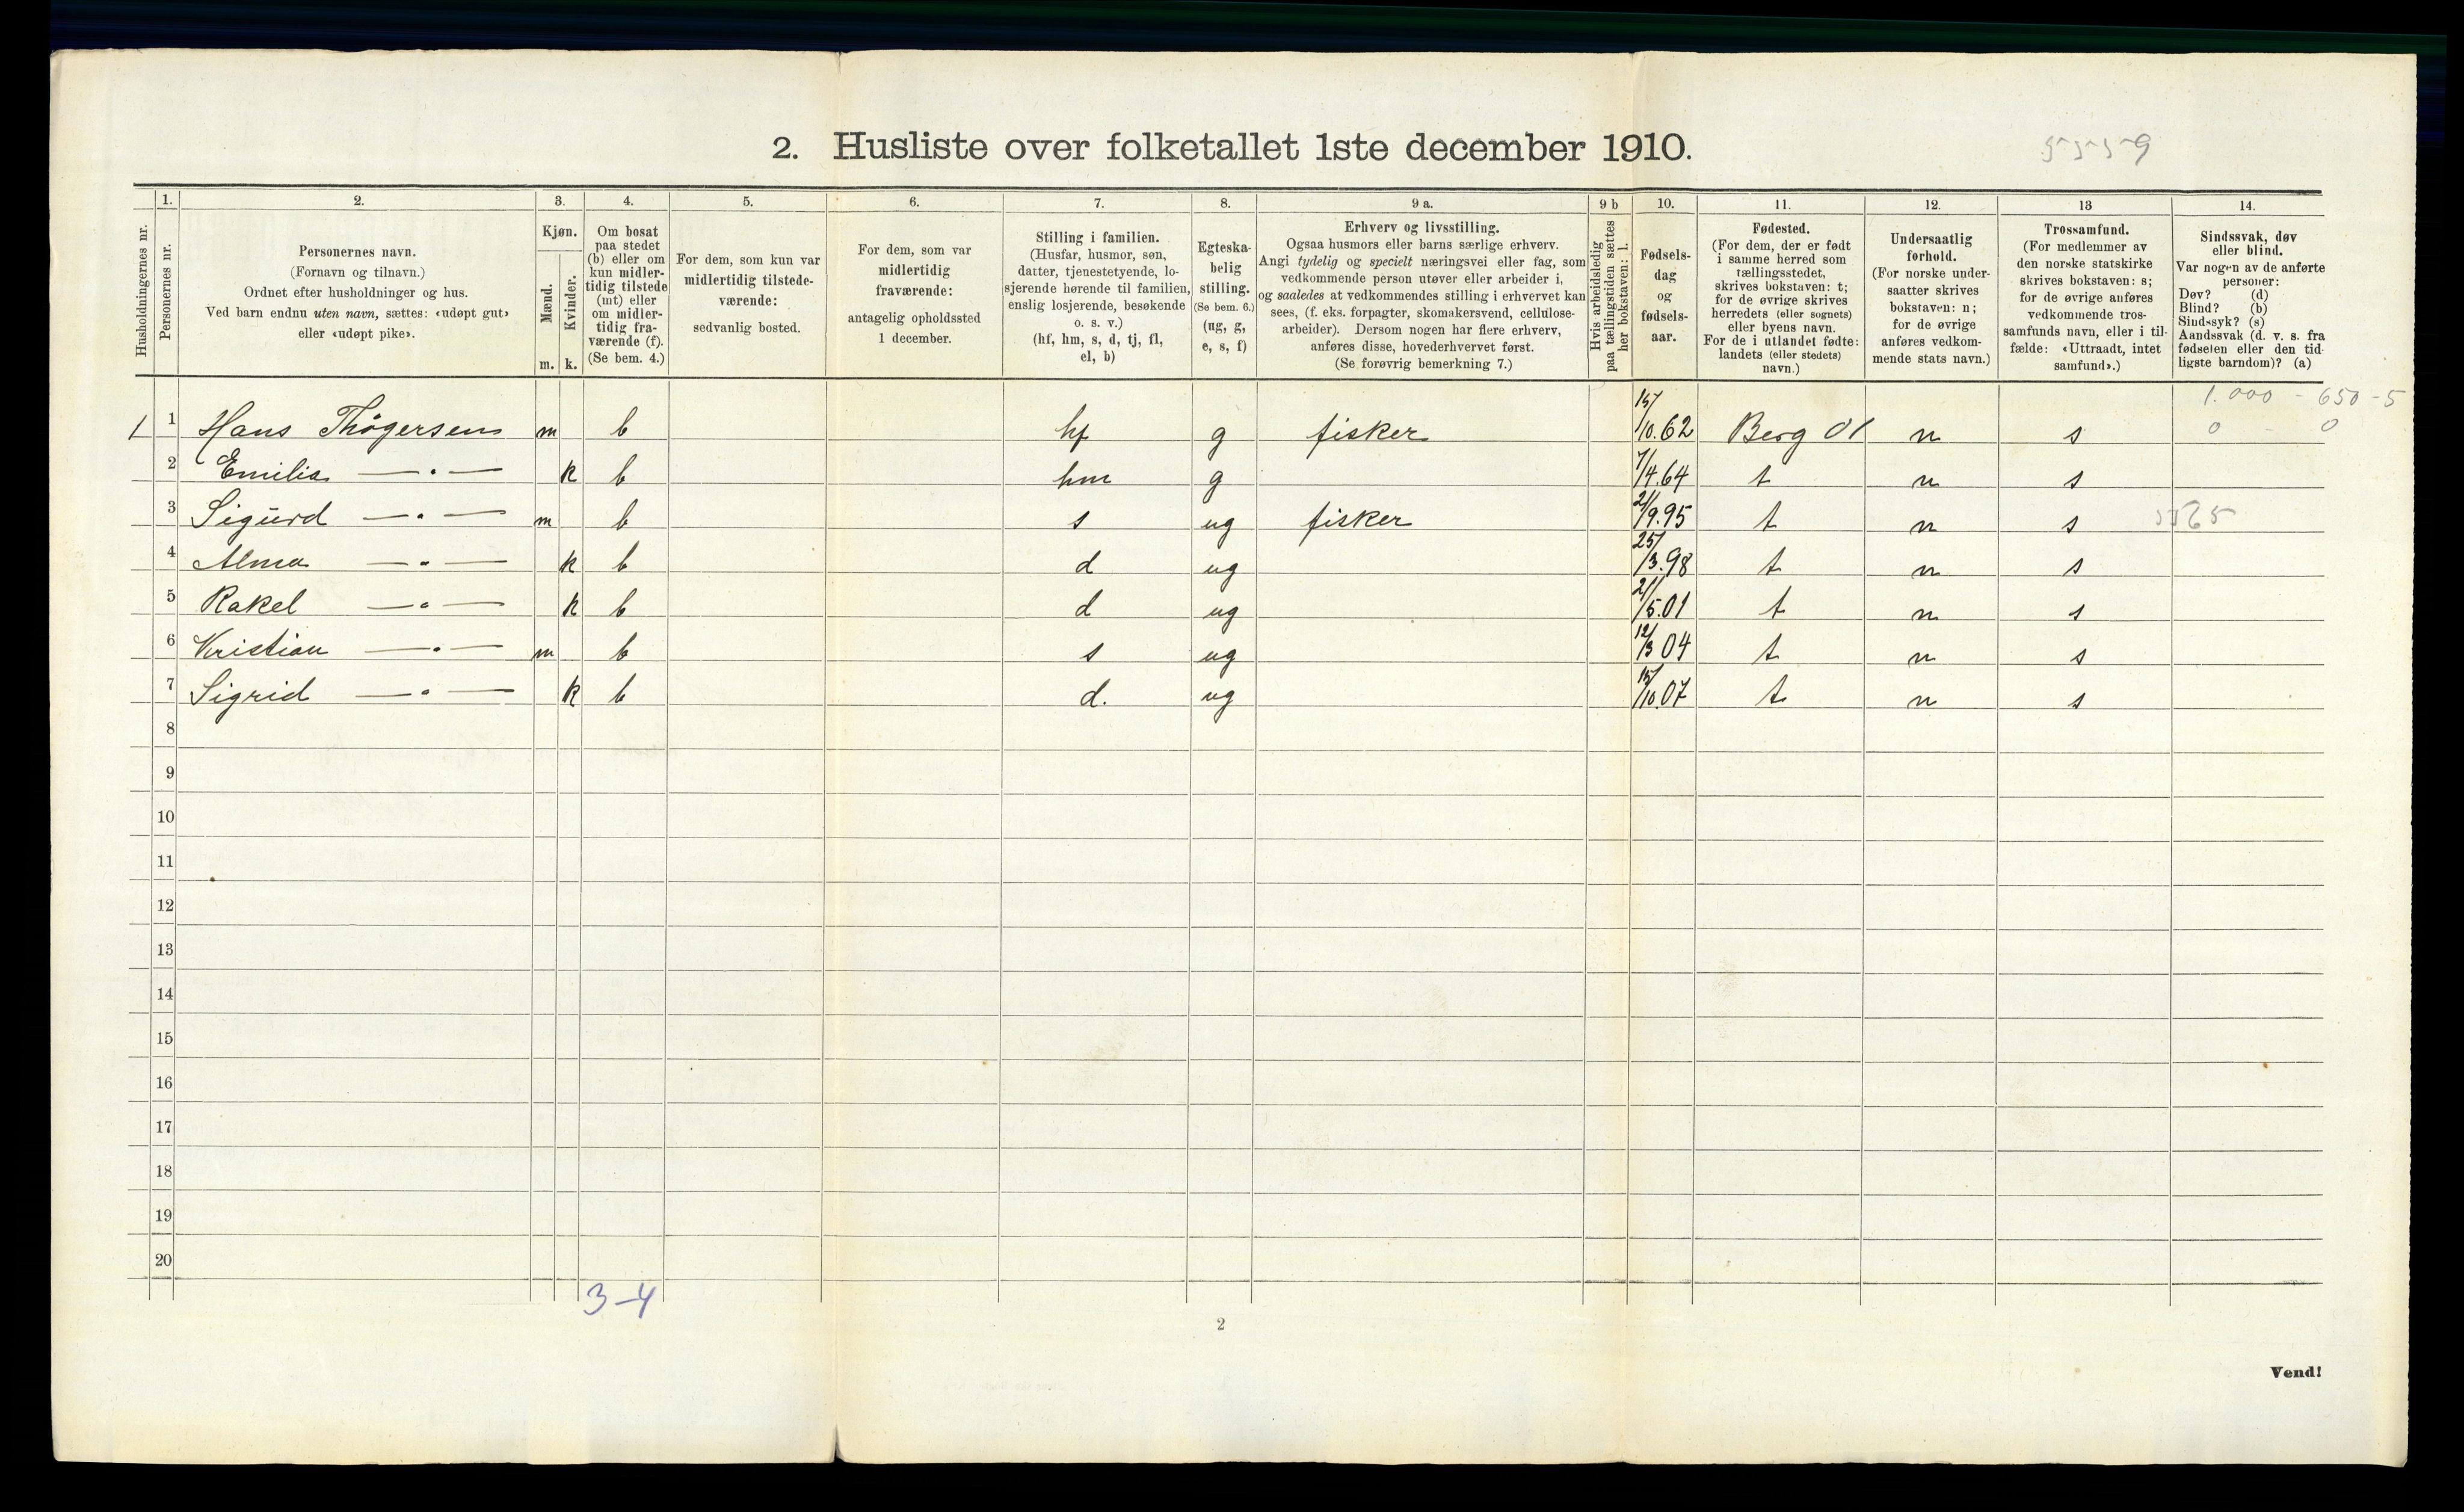 2. Husliste over folketallet 1ste december 1910.
Husholdningernes nr.
1. Personernes nr.
2. Personernes navn.
(Fornavn og tilnavn.)
Ordnet efter husholdninger og hus.
Ved barn endnu uten navn, sættes: «udøpt gut»
eller «udøpt pike».
3. Kjøn.
Mænd. m.
Kvinder. k.
4. Om bosat
paa stedet
(b) eller om
kun midler-
tidig tilstede
(mt) eller
om midler-
tidig fra-
værende (f).
(Se bem. 4.)
5. For dem, som kun var
midlertidig tilstede-
værende:
sedvanlig bosted.
6. For dem, som var
midlertidig
fraværende:
antagelig opholdssted
1 december.
7. Stilling i familien.
(Husfar, husmor, søn,
datter, tjenestetyende, lo-
sjerende hørende til familien,
enslig losjerende, besøkende
o. s. v.)
(hf, hm, s, d, tj, fl,
el, b)
8. Egteska-
belig
stilling.
(Se bem. 6.)
(ug, g,
e, s, f)
9 a. Erhverv og livsstilling.
Ogsaa husmors eller barns særlige erhverv.
Angi tydelig og specielt næringsvei eller fag, som
vedkommende person utøver eller arbeider i,
og saaledes at vedkommendes stilling i erhvervet kan
sees, (f. eks. forpagter, skomakersvend, cellulose-
arbeider). Dersom nogen har flere erhverv,
anføres disse, hovederhvervet først.
(Se forøvrig bemerkning 7.)
9 b Hvis arbeidsledig
paa tællingstiden sættes
her bokstaven: l.
10. Fødsels-
dag
og
fødsels-
aar.
11. Fødested.
(For dem, der er født
i samme herred som
tællingsstedet,
skrives bokstaven: t;
for de øvrige skrives
herredets (eller sognets)
eller byens navn.
For de i utlandet fødte:
landets (eller stedets)
navn.)
12. Undersaatlig
forhold.
(For norske under-
saatter skrives
bokstaven: n;
for de øvrige
anføres vedkom-
mende stats navn.)
13 Trossamfund.
(For medlemmer av
den norske statskirke
skrives bokstaven: s;
for de øvrige anføres
vedkommende tros-
samfunds navn, eller i til-
fælde: «Uttraadt, intet
samfund».)
14. Sindssvak, døv
eller blind.
Var nogen av de anførte
personer:
Døv? (d)
Blind? (b)
Sindssyk? (s)
Aandssvak (d. v. s. fra
fødselen eller den tid-
ligste barndom)? (a)
1.000 - 650 - 5
1 1 Hans Thøgersen m b hf g fisker 15/10.62 Berg 01 n s 0 - 0
2 Emilie — " — k b hm g 7/4.64 t n s
3 Sigurd — " — m b s ug fisker 21/9.95 t n s
4 Alma — " — k b d ug 25/3.98 t n s
5 Rakel — " — k b d ug 21/5.01 t n s
6 Kristian — " — m b s ug 12/3 04 t n s
7 Sigrid — " — k b d. ug 15/10.07 t n s
8
9
10
11
12
13
14
15
16
17
18
19
20
3-4
2
Vend!